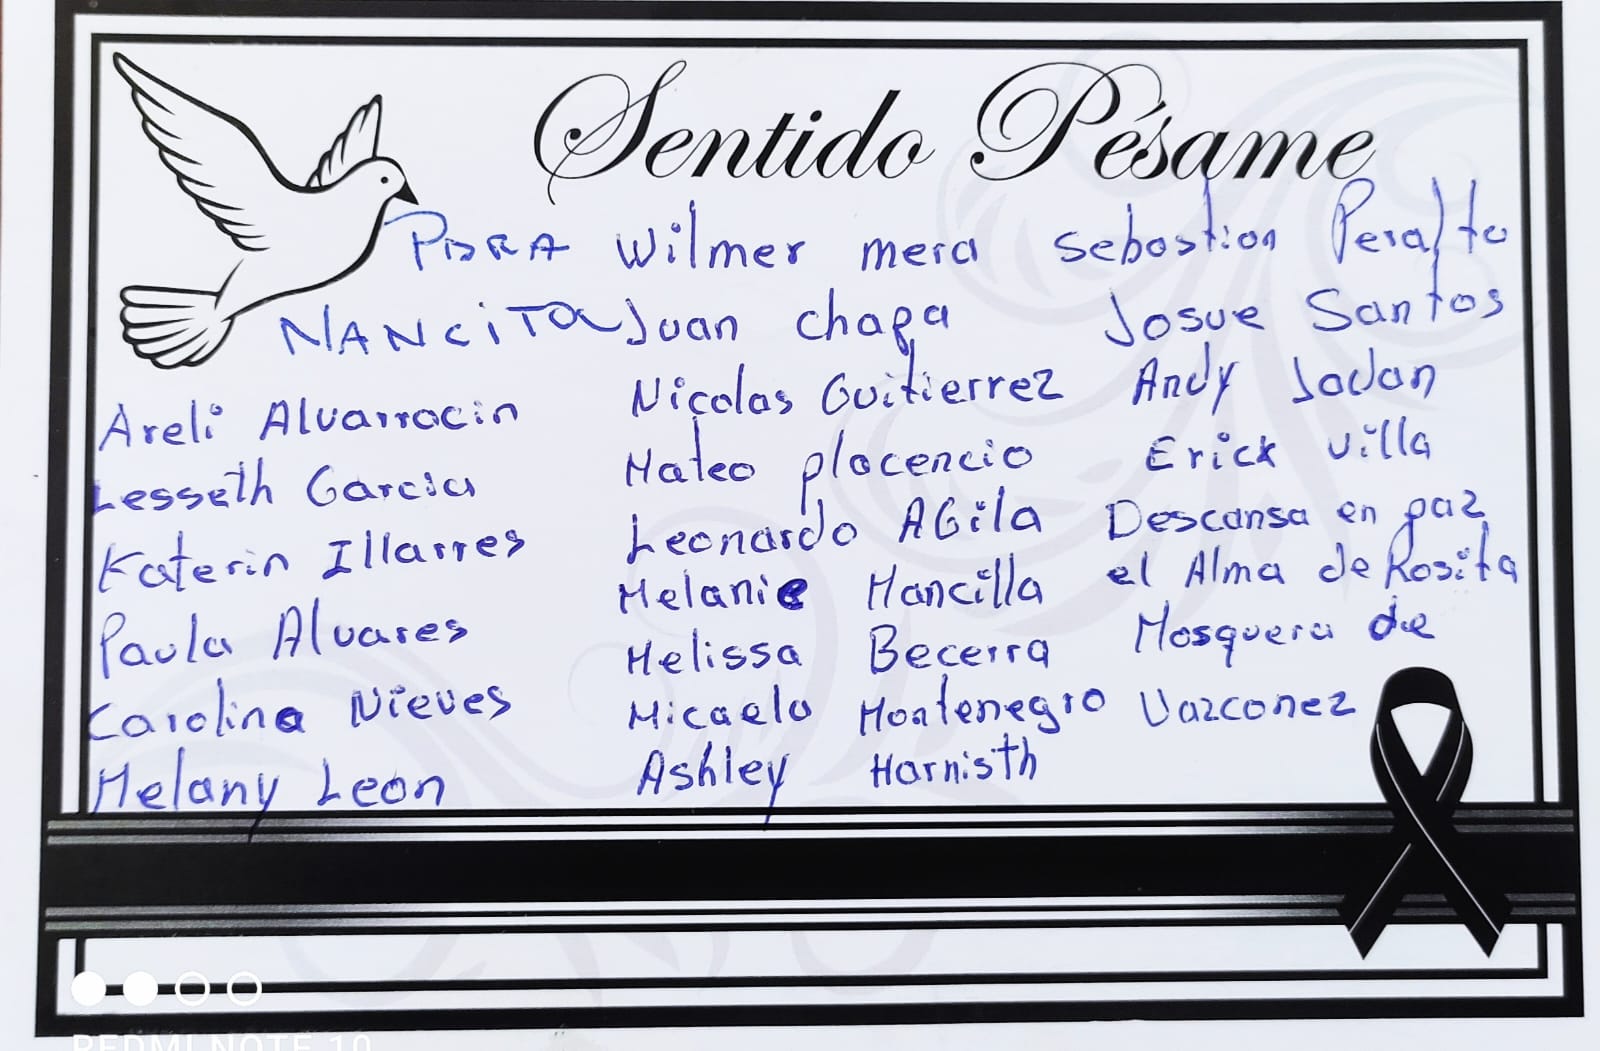 Sentido Pésame
PARA
NANCITA
Areli Alvarracin
Lesseth Garcia
Katerin Illarres
Paula Alvares
Carolina Nieves
Melany Leon
Wilmer mera
Juan chapa
Nicolas Guitierrez
Mateo placencio
Leonardo AGila
Melanie Mancilla
Melissa Becerra
Micaela Montenegro
Ashley Harnisth
Sebastian Peralta
Josue Santos
Andy Jadan
Erick Villa
Descansa en paz
el Alma de Rosita
Mosquera de
Vazconez
REDMI NOTE 10